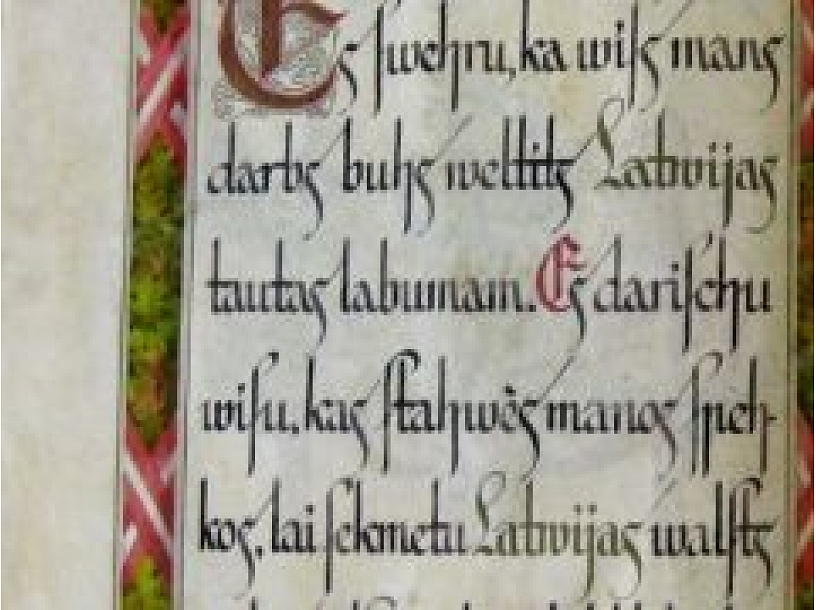 Es ſwehru, ka wiſs mans
darbs buhs weltits Latwijas
tautas labumam. Es dariſchu
wiſu, kas ſtahwès manos ſpeh-
kos, lai ſekmetu Latwijas walſts